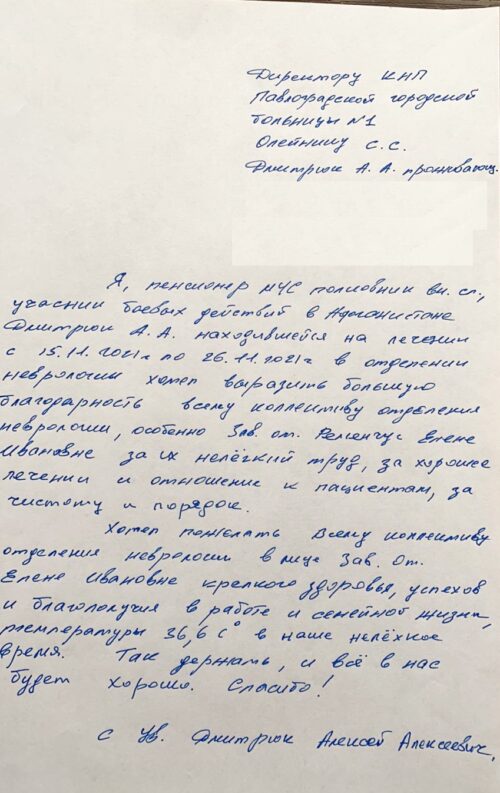 Директору КНП
Павлоградской городской
больницы №1
Олейнику С.С.
Дмитрюк А. А. проживающ.
Я, пенсионер МЧС полковник вн. сл.,
учасник боевых действий в Афганистане
Дмитрюк А.А. находившейся на лечении
с 15.11.2021г по 26.11.2021г в отделении
неврологии хотел выразить большую
благодарность всему коллективу отделения
неврологии, особенно Зав. от. Елене
Ивановне за их нелёгкий труд, за хорошее
лечении и отношение к пациентам, за
чистоту и порядок.
Хотел пожелать всему коллективу
отделения неврологии в лице Зав. От.
Елене Ивановне крепкого здоровья, успехов
и благополучия в работе и семейной жизни,
температуры 36,6 С° в наше нелёхкое
время. Так держать, и всё в нас
будет хорошо. Спасибо!
с Ув. Дмитрюк Алексей Алексеевич,